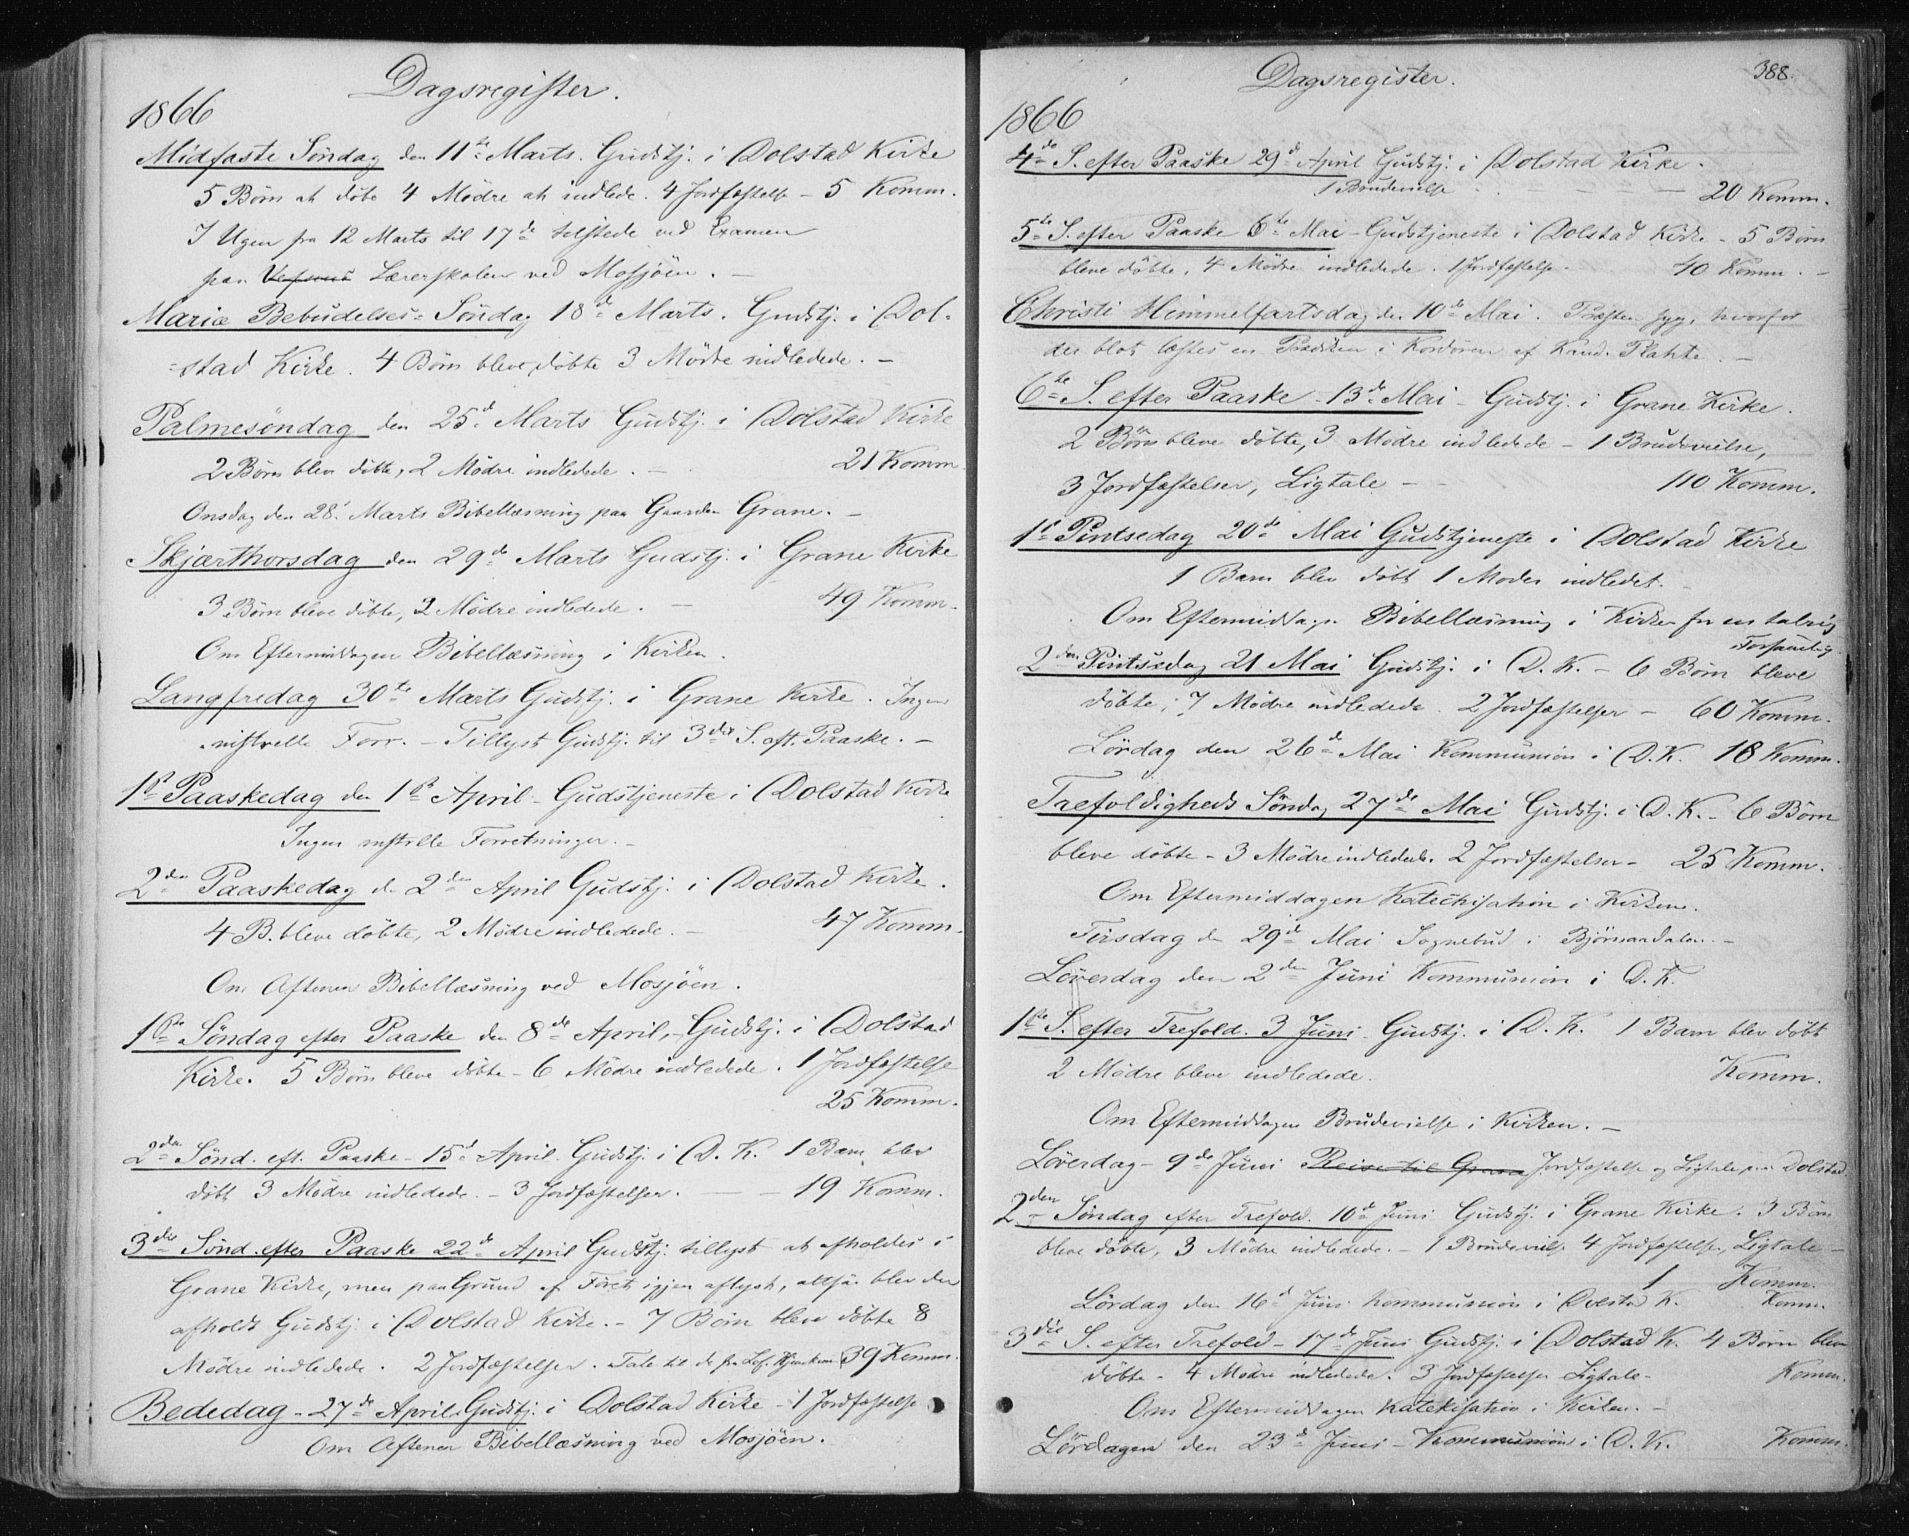 Dagsregister.
1866
Midfaste Søndag den 11te Marts. Gudstj. i Dolstad Kirke
5 Børn at døbe 4 Mødre at indlede. 4 Jordfæstelse - 5 Komm.
I Ugen fra 12 Marts til 17de tilstede ved Examen
paa Lærerskolen ved Mosjøen. -
Mariæ Bebudelses-Søndag 18de Marts. Gudstj. i Dol-
-stad Kirke. 4 Børn bleve døbte 3 Mødre indledede. -
Palmesøndag den 25de Marts Gudstj. i Dolstad Kirke
2 Børn blev døbte, 2 Mødre indledede. - 21 Komm.
Onsdag den 28. Marts Bibellæsning paa Gaarden Grane. -
Skjærthorsdag den 29de Marts Gudstj. i Grane Kirke
3 Børn bleve døbte, 2 Mødre indledede. - 49 Komm.
Om Eftermiddagen Bibellæsning i Kirken.
Langfredag 30te Marts Gudstj. i Grane Kirke. Ingen
Forr. - Tillyst Gudstj. til 3die S. eft. Paaske. -
1ste Paaskedag den 1ste April - Gudstjeneste i Dolstad Kirke
Ingen Forretninger. -
2den Paaskedag d. 2den April Gudstj. i Dolstad Kirke.
4 B. bleve døbte, 2 Mødre indledede. - 47 Komm.
Om Aftenen Bibellæsning ved Mosjøen.
1ste Søndag efter Paaske den 8de April, - Gudstj. i Dolstad
Kirke. 5 Børn bleve døbte - 6 Mødre indledede. 1 Jordfæstelse
25 Komm.
2den Sønd. eft. Paaske - 15d April. Gudstj. i D. K. 1 Barn blev
døbt 3 Mødre indledede. - 3 Jordfæstelser. - - 19 Komm.
3die Sønd. efter Paaske 22de April Gudstj. tillyst at afholdes i
Grane Kirke, men paa Grund af Føret igjen aflyst, altsaa blev der
afholdt Gudstj. i Dolstad Kirke. - 7 Børn bleve døbte 8
Mødre indledede. 2 Jordfæstelser. Tale til de fra Lof. 39 Komm.
Bededag - 27de April Gudstj. i Dolstad Kirke - 1 Jordfæstelse
Om Aftenen Bibellæsning ved Mosjøen.
388.
Dagsregister.
1866
4de S. efter Paaske 29d April Gudstj. i Dolstad Kirke.
1 Brudevielse - 20 Komm.
5te S. efter Paaske 6te Mai - Gudstjeneste i Dolstad Kirke - 5 Børn
bleve døbte, 4 Mødre indledede. 1 Jordfæstelse - 40 Komm. -
Christi Himmelfartsdag den 10de Mai. Præsten syg, hvorfor
der blot læstes en Prædiken i Kordøren af Kand. Plahte. -
6te S. efter Paaske - 13de Mai - Gudstj. i Grane Kirke.
2 Børn bleve døbte, 3 Mødre indledede - 1 Brudevielse,
3 Jordfæstelser, Ligtale - 110 Komm.
1ste Pintsedag 20de Mai Gudstjeneste i Dolstad Kirke
1 Barn blev døbt 1 Moder indledet. -
Om Eftermiddagen Bibellæsning i Kirken for en talrig
Forsamling.
2den Pintsedag 21 Mai Gudstj. i D. K. - 6 Børn bleve
døbte, 7 Mødre indledede 2 Jordfæstelser - 60 Komm.
Lørdag den 26de Mai Kommunion i D. K. 18 Komm.
Trefoldigheds Søndag 27de Mai Gudstj. i D. K. - 6 Børn
bleve døbte - 3 Mødre indledede. 2 Jordfæstelser - 25 Komm.
Om Eftermiddagen Katechisation i Kirken.
Tirsdag d. 29de Mai Sognebud i Bjørnaadalen. -
Løverdag den 2den Juni Kommunion i D. K.
1ste S. efter Trefold. 3 Juni Gudstj. i D. K. 1 Barn blev døbt
2 Mødre bleve indledede. Komm.
Om Eftermiddagen Brudevielse i Kirken. -
Løverdag - 9de Juni Reise til Grane Jordfæstelse og Ligtale paa Dolstad
2den Søndag efter Trefold. 10de Juni Gudstj. i Grane Kirke. 3 Børn
bleve døbte, 3 Mødre indledede. - 1 Brudevielse 4 Jordfæstelser, Ligtale -
1 Komm.
Lørdag den 16d Juni Kommunion i Dolstad K. Komm.
3die S. efter Trefold - 17de Juni Gudstj. i Dolstad K. 4 Børn bleve
døbte - 4 Mødre indledede. 3 Jordfæstelse Ligtale - Komm.
Om Eftermiddagen Katekisation i Kirken. -
Lørdagen den 23de Juni - Kommunion i D. K. Komm.